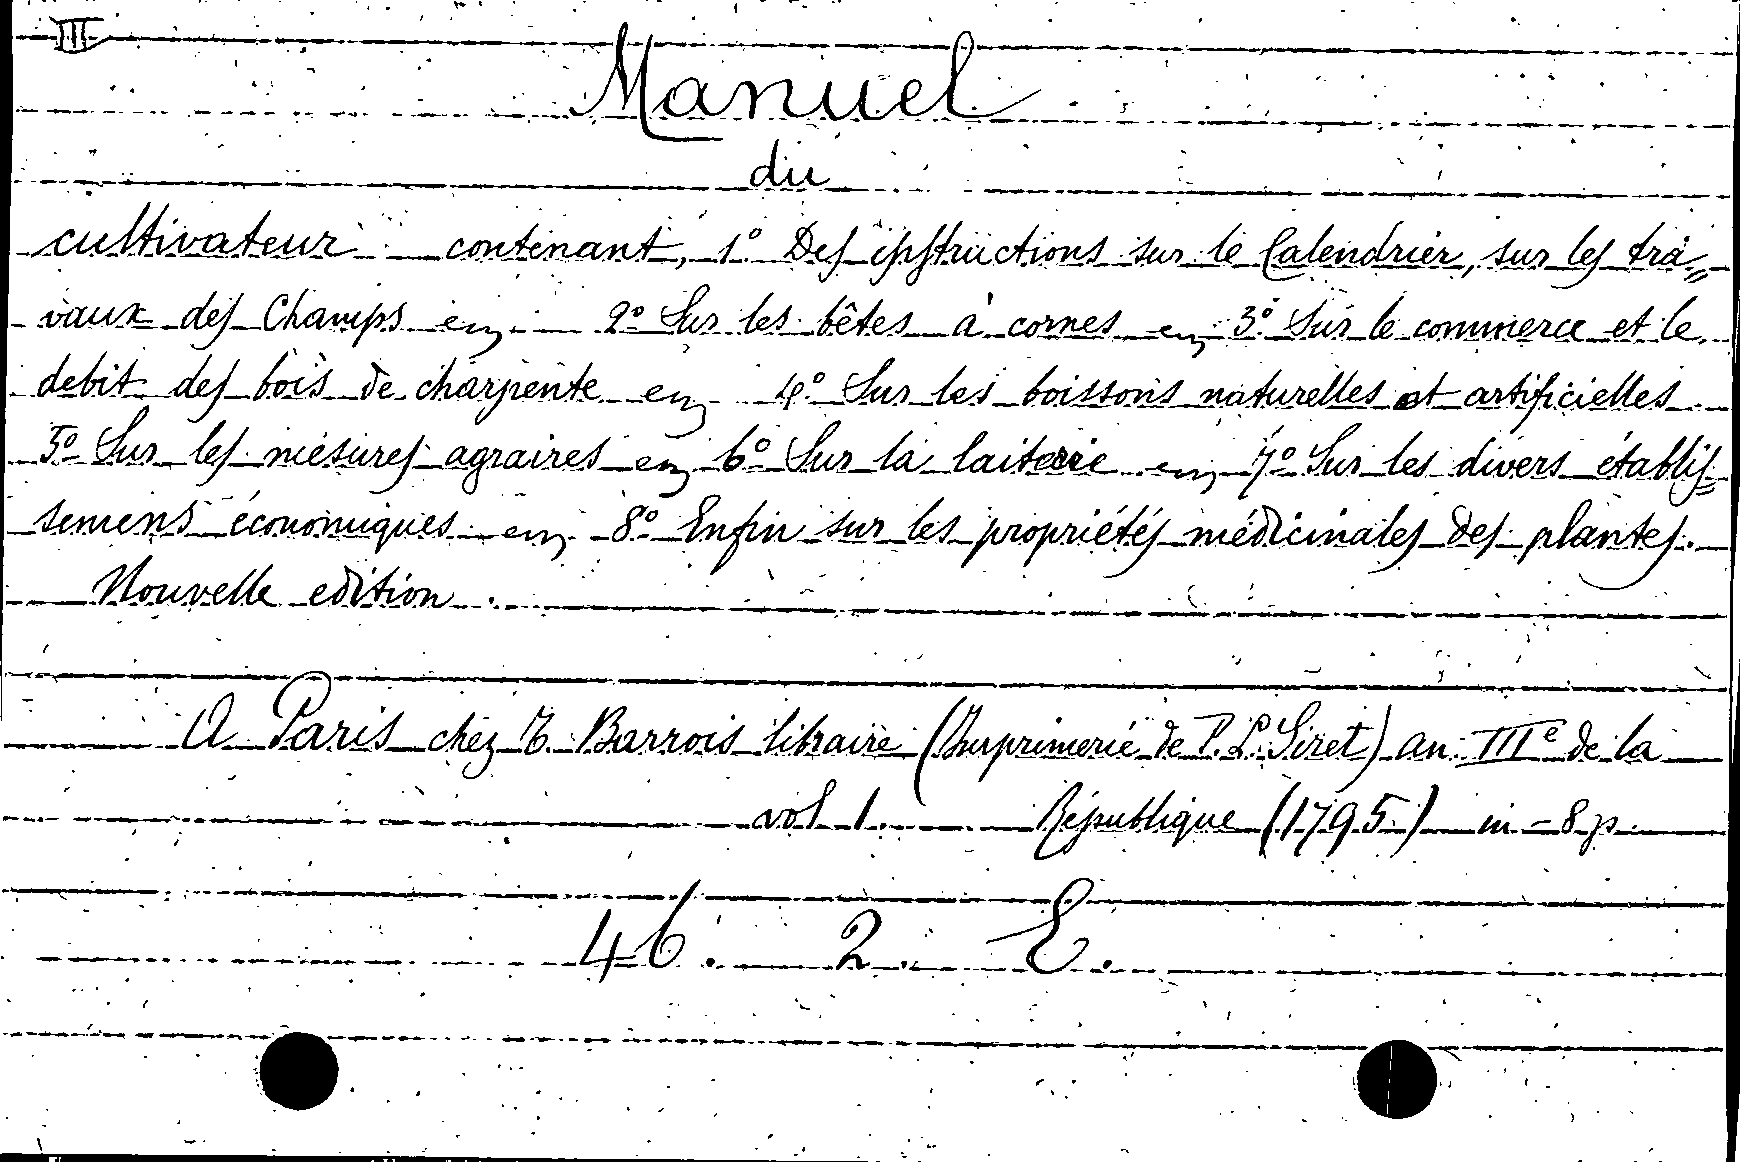 III
Manuel
du
cultivateur contenant, 1º Des instructions sur le Calendrier, sur les tra=
vaux des Champs en 2º Sur les bêtes à cornes en 3º Sur le commerce et le
debit des bois de charpente en 4º Sur les boissons naturelles et artificielles
5º Sur les mesures agraires en 6º Sur la laiterie en 7º Sur les divers établis=
semens économiques en 8º Enfin sur les propriétés médicinales des plantes.
Nouvelle edition.
A Paris chez T. Barrois libraire (Imprimerie de P. L. Siret) an IIIe de la
vol 1. République (1795) in-8 p.
46. 2. E.